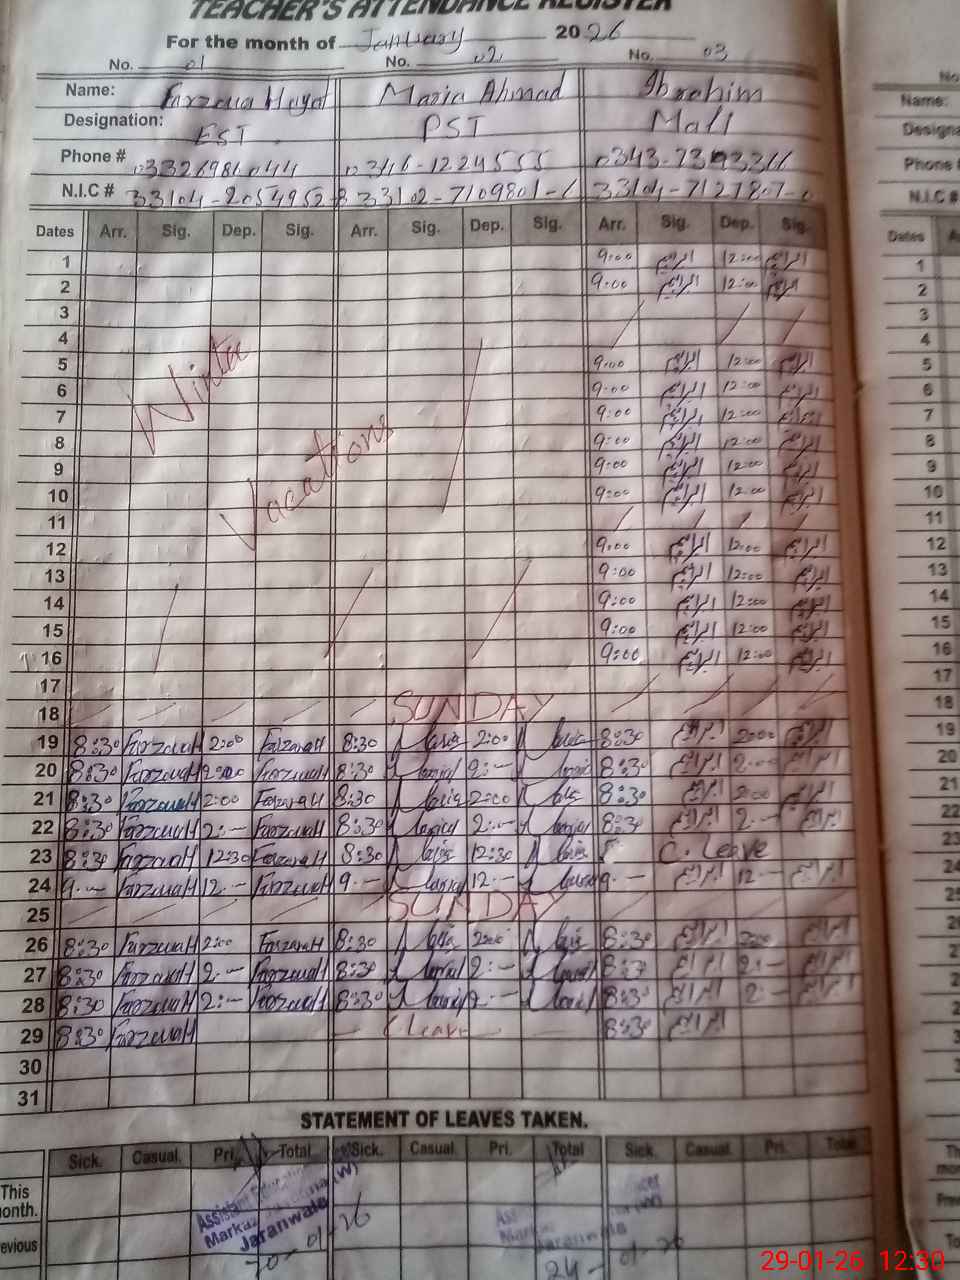 TEACHER'S ATTENDANCE REGISTER
For the month of January 2026
No. 01 No. 02 No. 03
Name: Farzana Hayat Maria Ahmad Ibrahim
Designation: EST PST Mali
Phone # 0346-1224555
N.I.C # 33102-7109801-6
Dates Arr. Sig. Dep. Sig. Arr. Sig. Dep. Sig. Arr. Sig. Dep. Sig.
1 9:00 ابراہیم 12:00 ابراہیم
2 9:00 ابراہیم 12:00 ابراہیم
3
4
5 9:00 ابراہیم 12:00 ابراہیم
6 9:00 ابراہیم 12:00 ابراہیم
7 9:00 ابراہیم 12:00 ابراہیم
8 9:00 ابراہیم 12:00 ابراہیم
9 9:00 ابراہیم 12:00 ابراہیم
10 9:00 ابراہیم 12:00 ابراہیم
Winter
Vacations
11
12 9:00 ابراہیم 12:00 ابراہیم
13 9:00 ابراہیم 12:00 ابراہیم
14 9:00 ابراہیم 12:00 ابراہیم
15 9:00 ابراہیم 12:00 ابراہیم
16 9:00 ابراہیم 12:00 ابراہیم
17
18 SUNDAY
19 8:30 FarzanaH 2:00 FarzanaH 8:30 Maria 2:00 Maria 8:30 ابراہیم 2:00 ابراہیم
20 8:30 FarzanaH 2:00 FarzanaH 8:30 Maria 2:— Maria 8:30 ابراہیم 2:00 ابراہیم
21 8:30 FarzanaH 2:00 FarzanaH 8:30 Maria 2:00 Maria 8:30 ابراہیم 2:00 ابراہیم
22 8:30 FarzanaH 2:— FarzanaH 8:30 Maria 2:— Maria 8:30 ابراہیم 2:— ابراہیم
23 8:30 FarzanaH 12:30 FarzanaH 8:30 Maria 12:30 Maria C. Leave
24 9:— FarzanaH 12:— FarzanaH 9:— Maria 12:— Maria 9:— ابراہیم 12:— ابراہیم
25 SUNDAY
26 8:30 FarzanaH 2:00 FarzanaH 8:30 Maria 2:00 Maria 8:30 ابراہیم 2:00 ابراہیم
27 8:30 FarzanaH 2:— FarzanaH 8:30 Maria 2:— Maria 8:30 ابراہیم 2:— ابراہیم
28 8:30 FarzanaH 2:— FarzanaH 8:30 Maria 2:— Maria 8:30 ابراہیم 2:— ابراہیم
29 8:30 FarzanaH C Leave 8:30 ابراہیم
30
31
STATEMENT OF LEAVES TAKEN.
Sick. Casual. Pri. Total Sick. Casual. Pri. Total Sick. Casual. Pri. Total
This
month.
Assistant
Markaz (W)
Jaranwala
Jaranwala
29-01-26 12:30